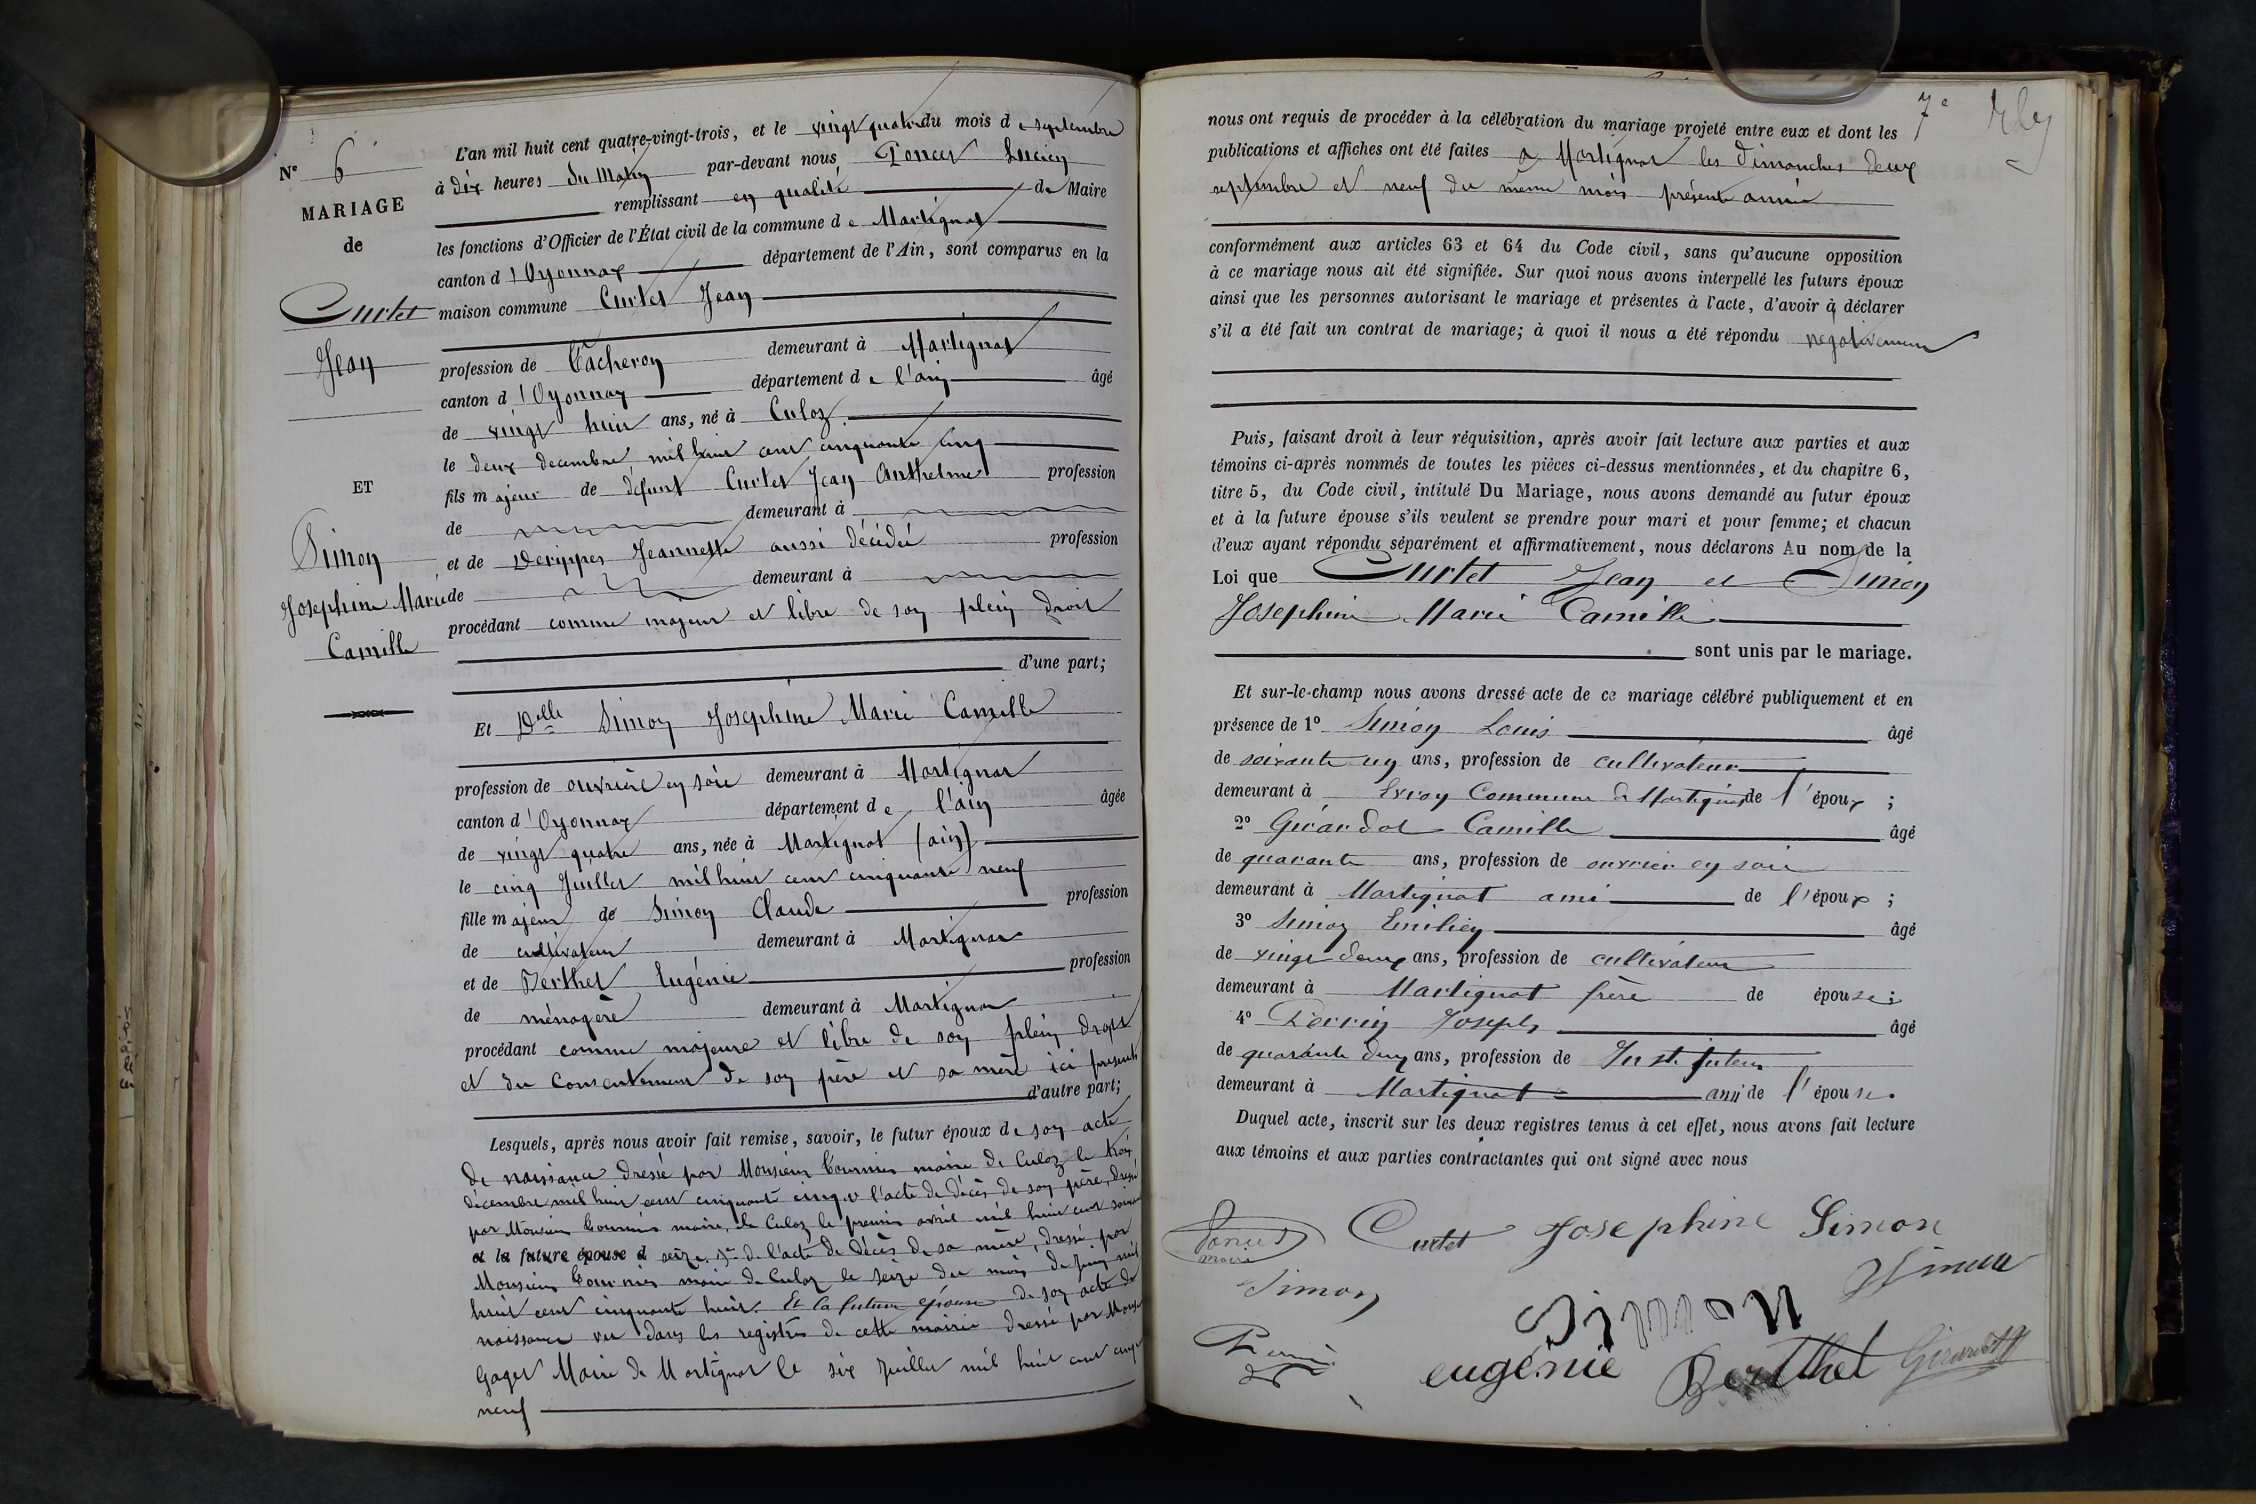 N° 6
MARIAGE
de
Curtet
Jean
ET
Simon
Josephine Marie
Camille
L'an mil huit cent quatre-vingt-trois, et le vingt quatre du mois de septembre
à dix heures du Matin par-devant nous Poncet Lucien
remplissant en qualité de Maire
les fonctions d'Officier de l'État civil de la commune de Martignat
canton d'Oyonnax département de l'Ain, sont comparus en la
maison commune Curtet Jean
profession de Tâcheron demeurant à Martignat
canton d'Oyonnax département de l'ain âgé
de vingt huit ans, né à Culoz
le deux decembre mil huit cent cinquante cinq
fils majeur de défunt Curtet Jean Anthelme profession
de demeurant à
et de Derippes Jeannette aussi décédée profession
de demeurant à
procédant comme majeur et libre de son plein droit
d'une part;
Et Delle Simon Josephine Marie Camille
profession de ouvrière en soie demeurant à Martignat
canton d'Oyonnax département de l'ain âgée
de vingt quatre ans, née à Martignat (ain)
le cinq Juillet mil huit cent cinquante neuf
fille majeure de Simon Claude profession
de cultivateur demeurant à Martignat
et de Berthet Eugénie profession
de ménagère demeurant à Martignat
procédant comme majeure et libre de son plein droit
et du consentement de son père et sa mère ici présents
d'autre part;
Lesquels, après nous avoir fait remise, savoir, le futur époux de son acte
de naissance dressé par Monsieur maire de Culoz le trois
décembre mil huit cent cinquante cinq l'acte de décès de son père, dressé
par Monsieur maire de Culoz le premier avril mil huit cent
et la future épouse d seize de l'acte de décès de sa mère, dressé par
Monsieur maire de Culoz le seize du mois de juin mil
huit cent cinquante huit. Et la future épouse de son acte de
naissance vu dans les registres de cette mairie dressé par
Gaget Maire de Martignat le six Juillet mil huit cent
neuf
7e
nous ont requis de procéder à la célébration du mariage projeté entre eux et dont les
publications et affiches ont été faites à Martignat les dimanches deux
septembre et neuf du même mois présente année
conformément aux articles 63 et 64 du Code civil, sans qu'aucune opposition
à ce mariage nous ait été signifiée. Sur quoi nous avons interpellé les futurs époux
ainsi que les personnes autorisant le mariage et présentes à l'acte, d'avoir à déclarer
s'il a été fait un contrat de mariage; à quoi il nous a été répondu négativement
Puis, faisant droit à leur réquisition, après avoir fait lecture aux parties et aux
témoins ci-après nommés de toutes les pièces ci-dessus mentionnées, et du chapitre 6,
titre 5, du Code civil, intitulé Du Mariage, nous avons demandé au futur époux
et à la future épouse s'ils veulent se prendre pour mari et pour femme; et chacun
d'eux ayant répondu séparément et affirmativement, nous déclarons Au nom de la
Loi que Curtet Jean et Simon
Josephine Marie Camille
sont unis par le mariage.
Et sur-le-champ nous avons dressé acte de ce mariage célébré publiquement et en
présence de 1° Simon Louis âgé
de soixante un ans, profession de cultivateur
demeurant à Evron Commune de Martignat de l'époux;
2° Girardot Camille âgé
de quarante ans, profession de ouvrier en soie
demeurant à Martignat ami de l'époux;
3° Simon Emilien âgé
de vingt deux ans, profession de cultivateur
demeurant à Martignat frère de épouse;
4° Perrin Joseph âgé
de quarante deux ans, profession de Instituteur
demeurant à Martignat ami de l'épouse.
Duquel acte, inscrit sur les deux registres tenus à cet effet, nous avons fait lecture
aux témoins et aux parties contractantes qui ont signé avec nous
Poncet
maire
Curtet
Josephine Simon
Simon
Simon
Simon
Perrin
eugénie Berthet
Girardot